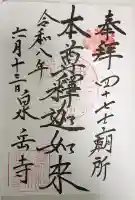 奉拝 四十七士廟所
本尊釋迦如来
令和八年
六月十三日 泉岳寺